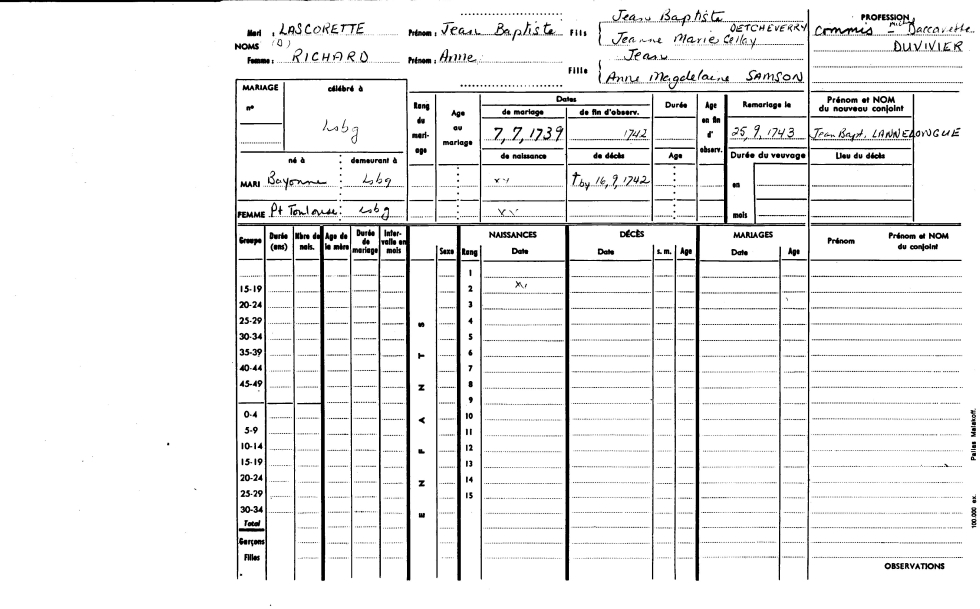 Jean Baptiste
PROFESSION
Mari : LASCORETTE Prénom : Jean Baptiste Fils { Jeanne Marie DETCHEVERRY Commis -
NOMS (D)
DUVIVIER
Femme : RICHARD Prénom : Anne Fille { Jean
Anne Magdelaine SAMSON
MARIAGE célébré à
n° Lsbg
Rang du mari- age
Age au mariage
Dates
de mariage de fin d'observ.
7, 7, 1739 1742
Durée
Age en fin d' observ.
Remariage le
25, 9, 1743
Prénom et NOM du nouveau conjoint
Jean Bapt. LANNELONGUE
né à demeurant à
de naissance de décès Age
Durée du veuvage
Lieu du décès
MARI Bayonne Lsbg †by 16, 9, 1742 en
FEMME Pt Toulouse Lsbg mois
Groupe Durée (ans) Nbre de nais. Age de la mère Durée de mariage Inter- valle en mois
E N F A N T S
Sexe Rang
NAISSANCES Date
DÉCÈS Date s. m. Age
MARIAGES Date Age
Prénom Prénom et NOM du conjoint
1
15-19 2
20-24 3
25-29 4
30-34 5
35-39 6
40-44 7
45-49 8
9
0-4 10
5-9 11
10-14 12
15-19 13
20-24 14
25-29 15
30-34
Total
Garçons
Filles
OBSERVATIONS
100.000 ex. Palles Malakoff.